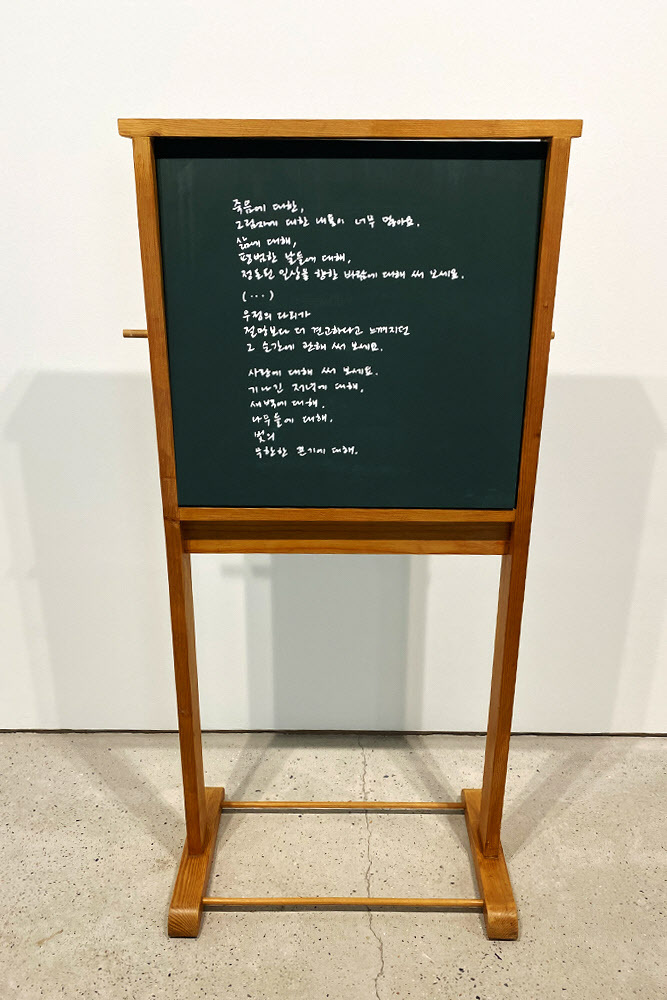 죽음에 대한,
그림자에 대한 내용이 너무 많아요.
삶에 대해,
평범한 날들에 대해,
정돈된 일상을 향한 바람에 대해 써 보세요.
(···)
우정의 다리가
절망보다 더 견고하다고 느껴지던
그 순간에 관해 써 보세요.
사랑에 대해 써 보세요.
기나긴 저녁에 대해,
새벽에 대해,
나무들에 대해,
빛의
무한한 끈기에 대해.